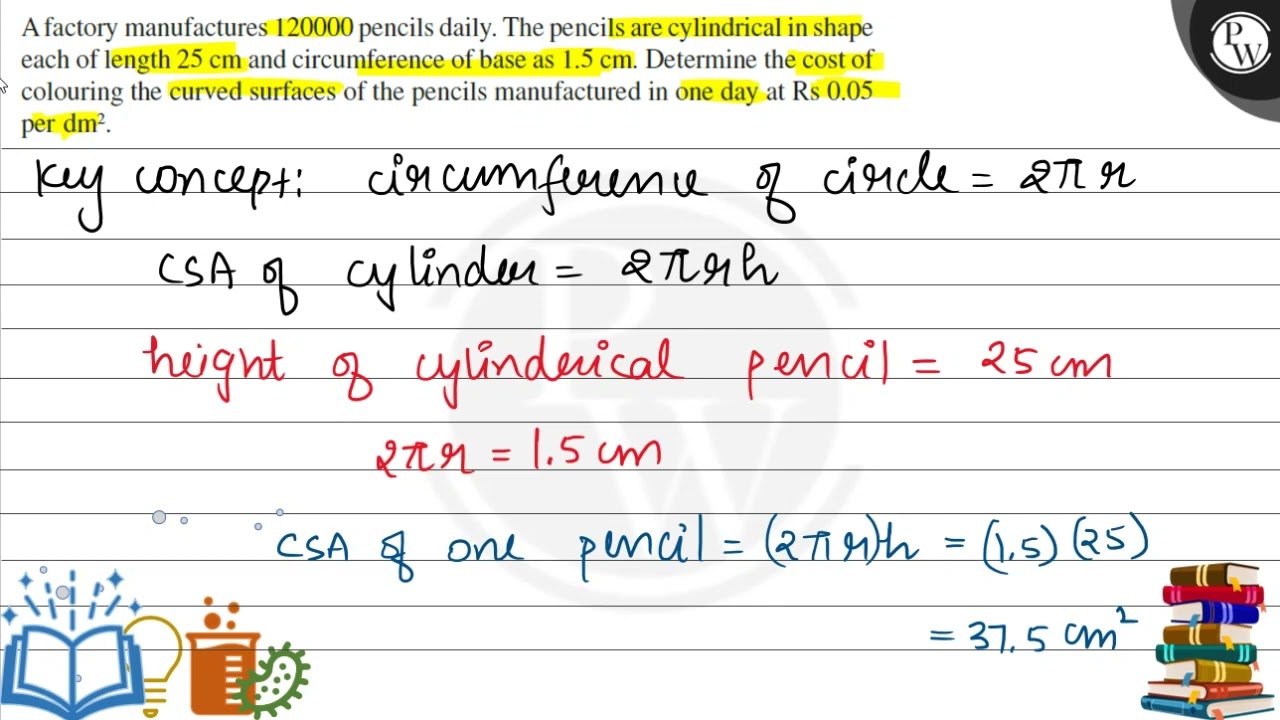 A factory manufactures 120000 pencils daily. The pencils are cylindrical in shape
each of length 25 cm and circumference of base as 1.5 cm. Determine the cost of
colouring the curved surfaces of the pencils manufactured in one day at Rs 0.05
per dm².
PW
Key concept: circumference of circle = 2πr
CSA of cylinder = 2πrh
height of cylinderical pencil = 25 cm
2πr = 1.5 cm
CSA of one pencil = (2πr)h = (1.5) (25)
= 37.5 cm²